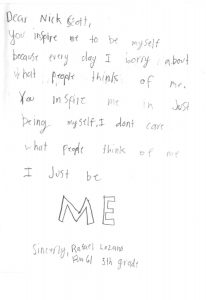 Dear Nick Scott,
You inspire me to be myself
because every day I borry about
what people thinks of me.
You inspire me in Just
being myself. I dont care
what people think of me
I Just be
ME
Sincerly, Rafael Lozano
Rm 61 5th grade